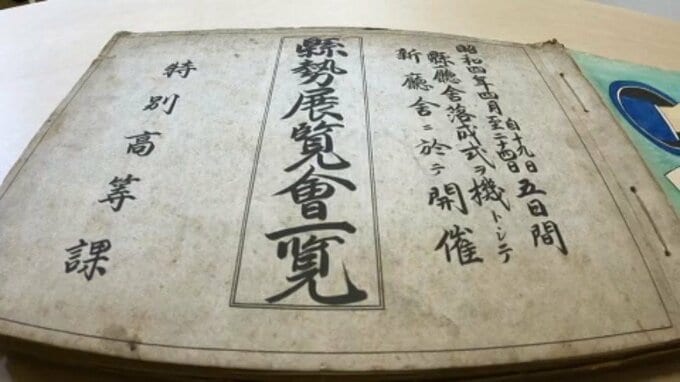 昭和四年四月自十九日至二十四日五日間
縣廳舎落成式ヲ機トシテ
新廳舎ニ於テ開催
縣勢展覧會一覧
特別高等課